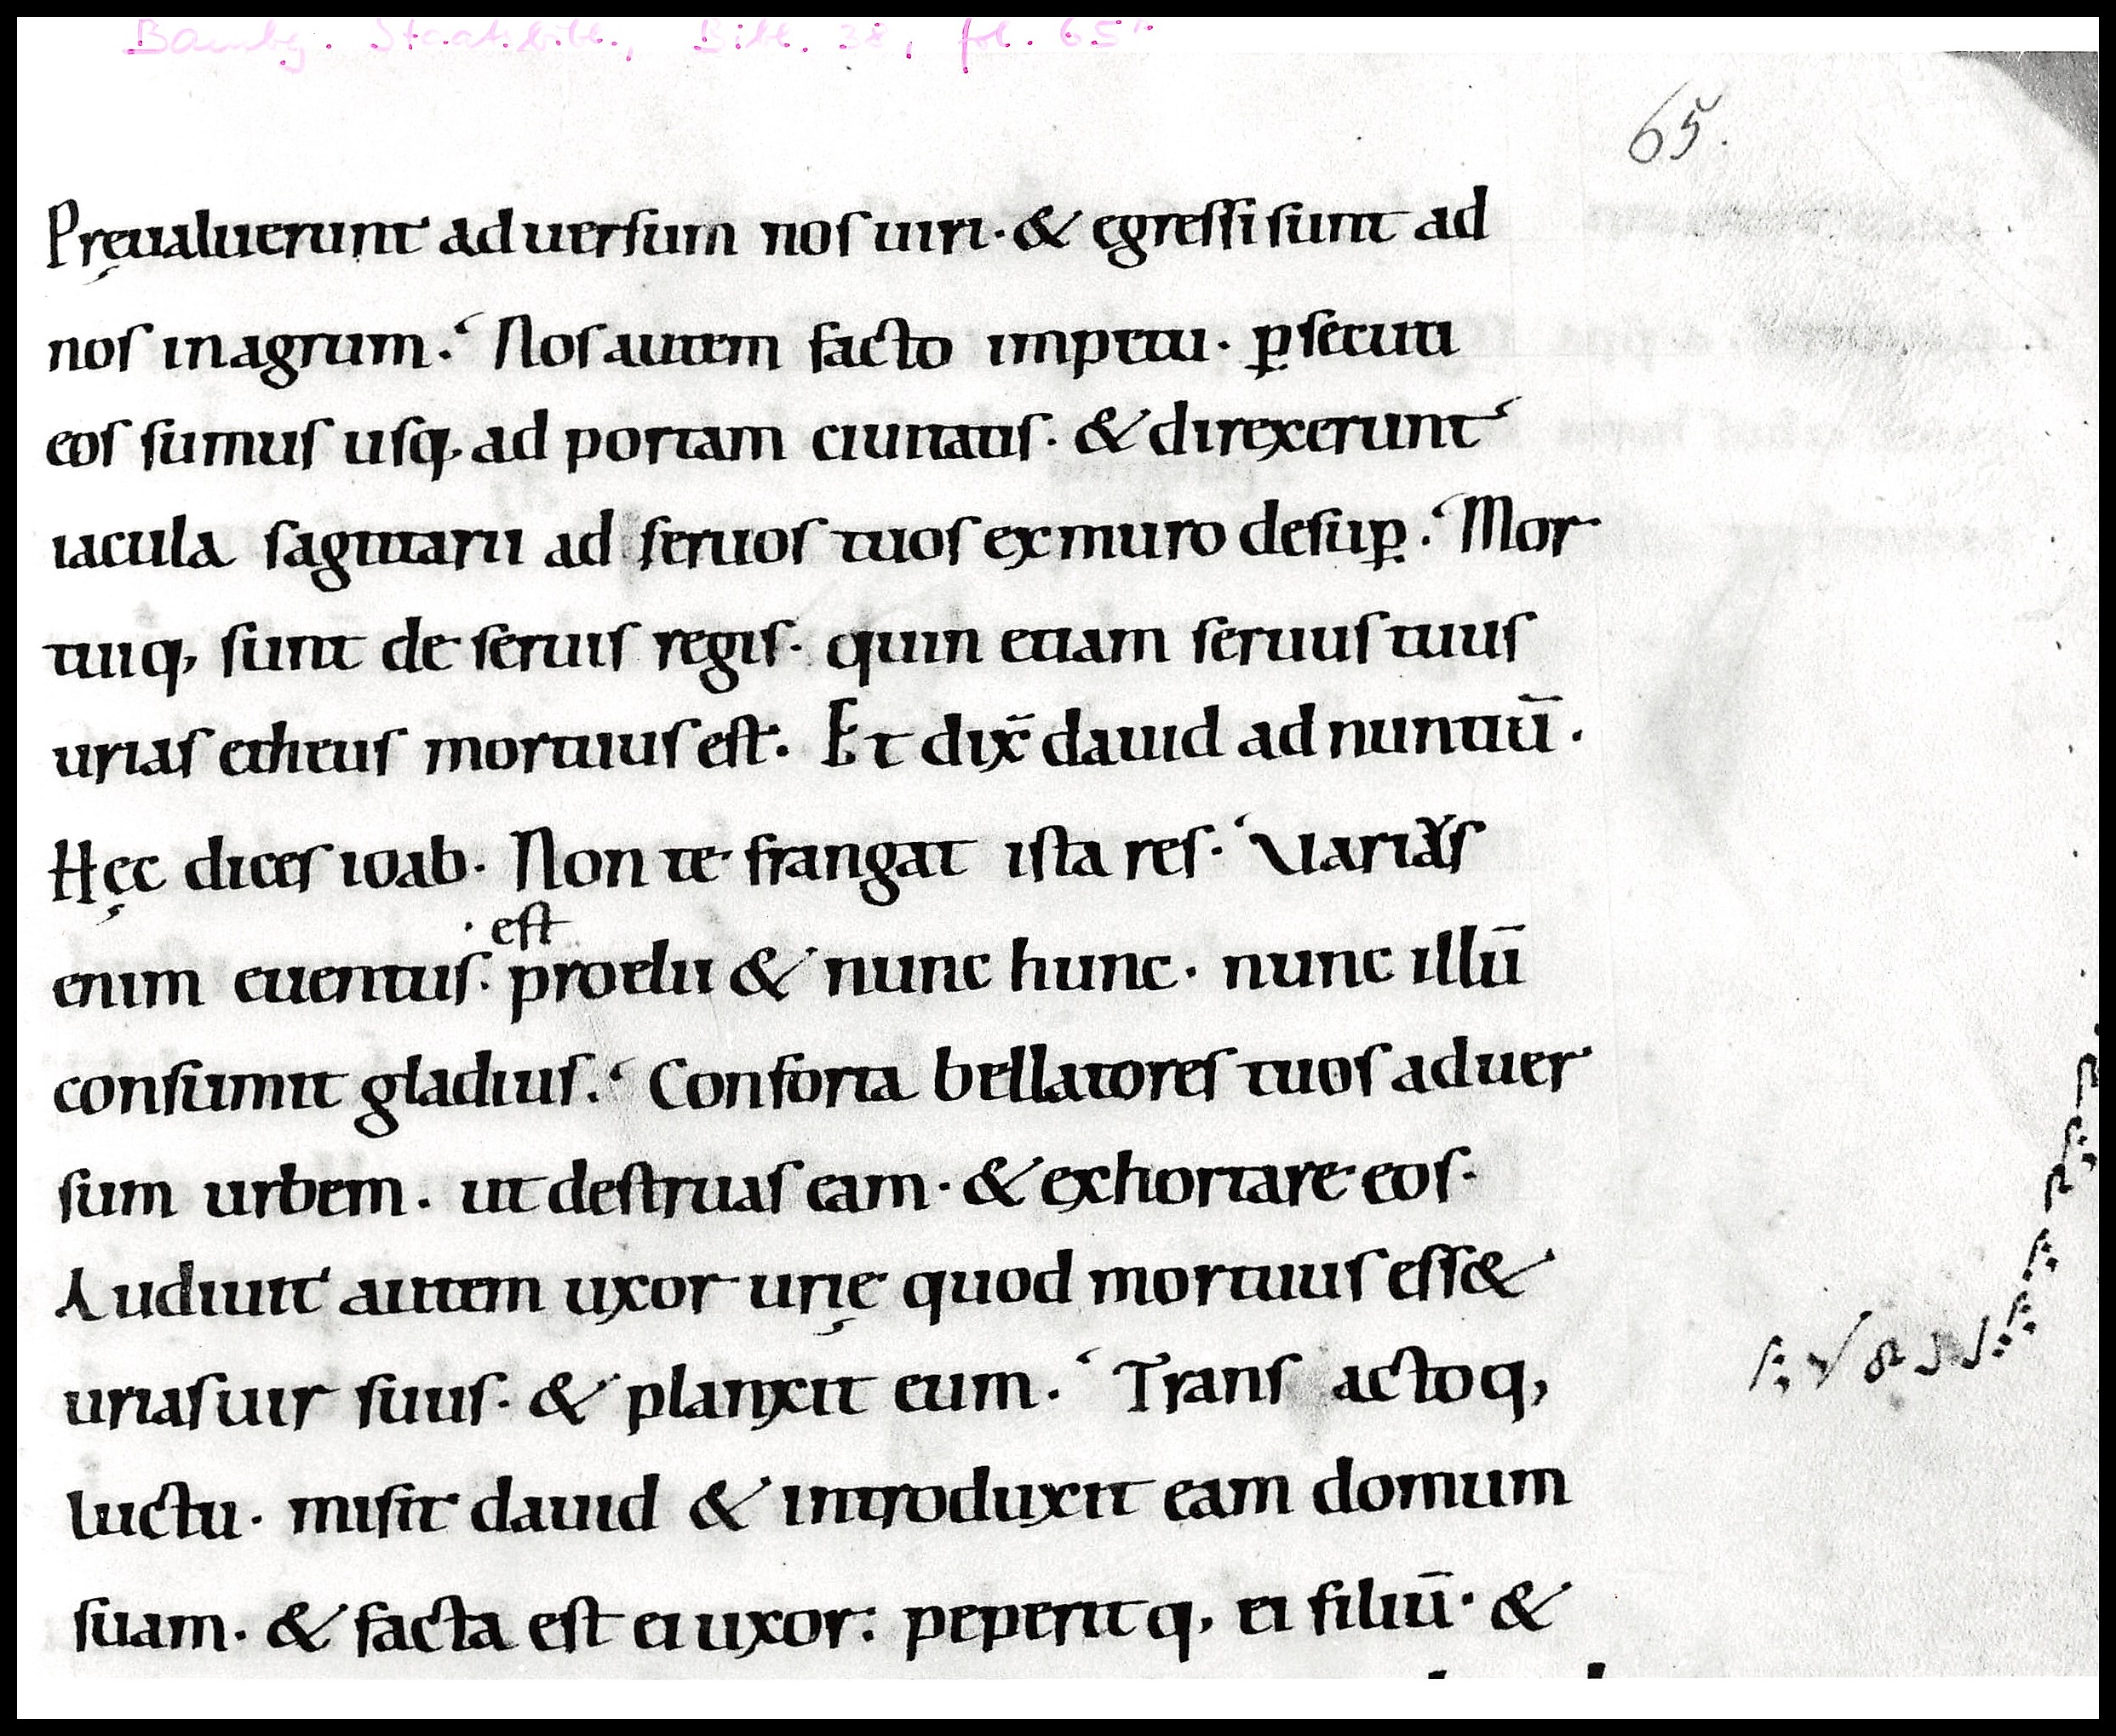 Bambg. Staatsbibl., Bibl. 38, fol. 65r
65.
Pręualuerunt aduersum nos uiri · & egressi sunt ad
nos inagrum. Nos autem facto impetu · ꝑsecuti
eos sumus usq; ad portam ciuitatis · & direxerunt
iacula sagittarii ad seruos tuos exmuro desuꝑ. Mor
tuiq; sunt de seruis regis · quin etiam seruus tuus
urias etheus mortuus est. Et dix̄ dauid ad nuntiū .
Hęc dices ioab · Non te frangat ista res · Varius
est
enim euentus · proelii & nunc hunc · nunc illū
consumit gladius. Conforta bellatores tuos aduer
sum urbem . ut destruas eam · & exhortare eos ·
Audiuit autem uxor urię quod mortuus ess&
urias uir suus · & planxit eum. Trans actoq;
luctu · misit dauid & introduxit eam domum
suam · & facta est ei uxor : peperitq; ei filiū · &